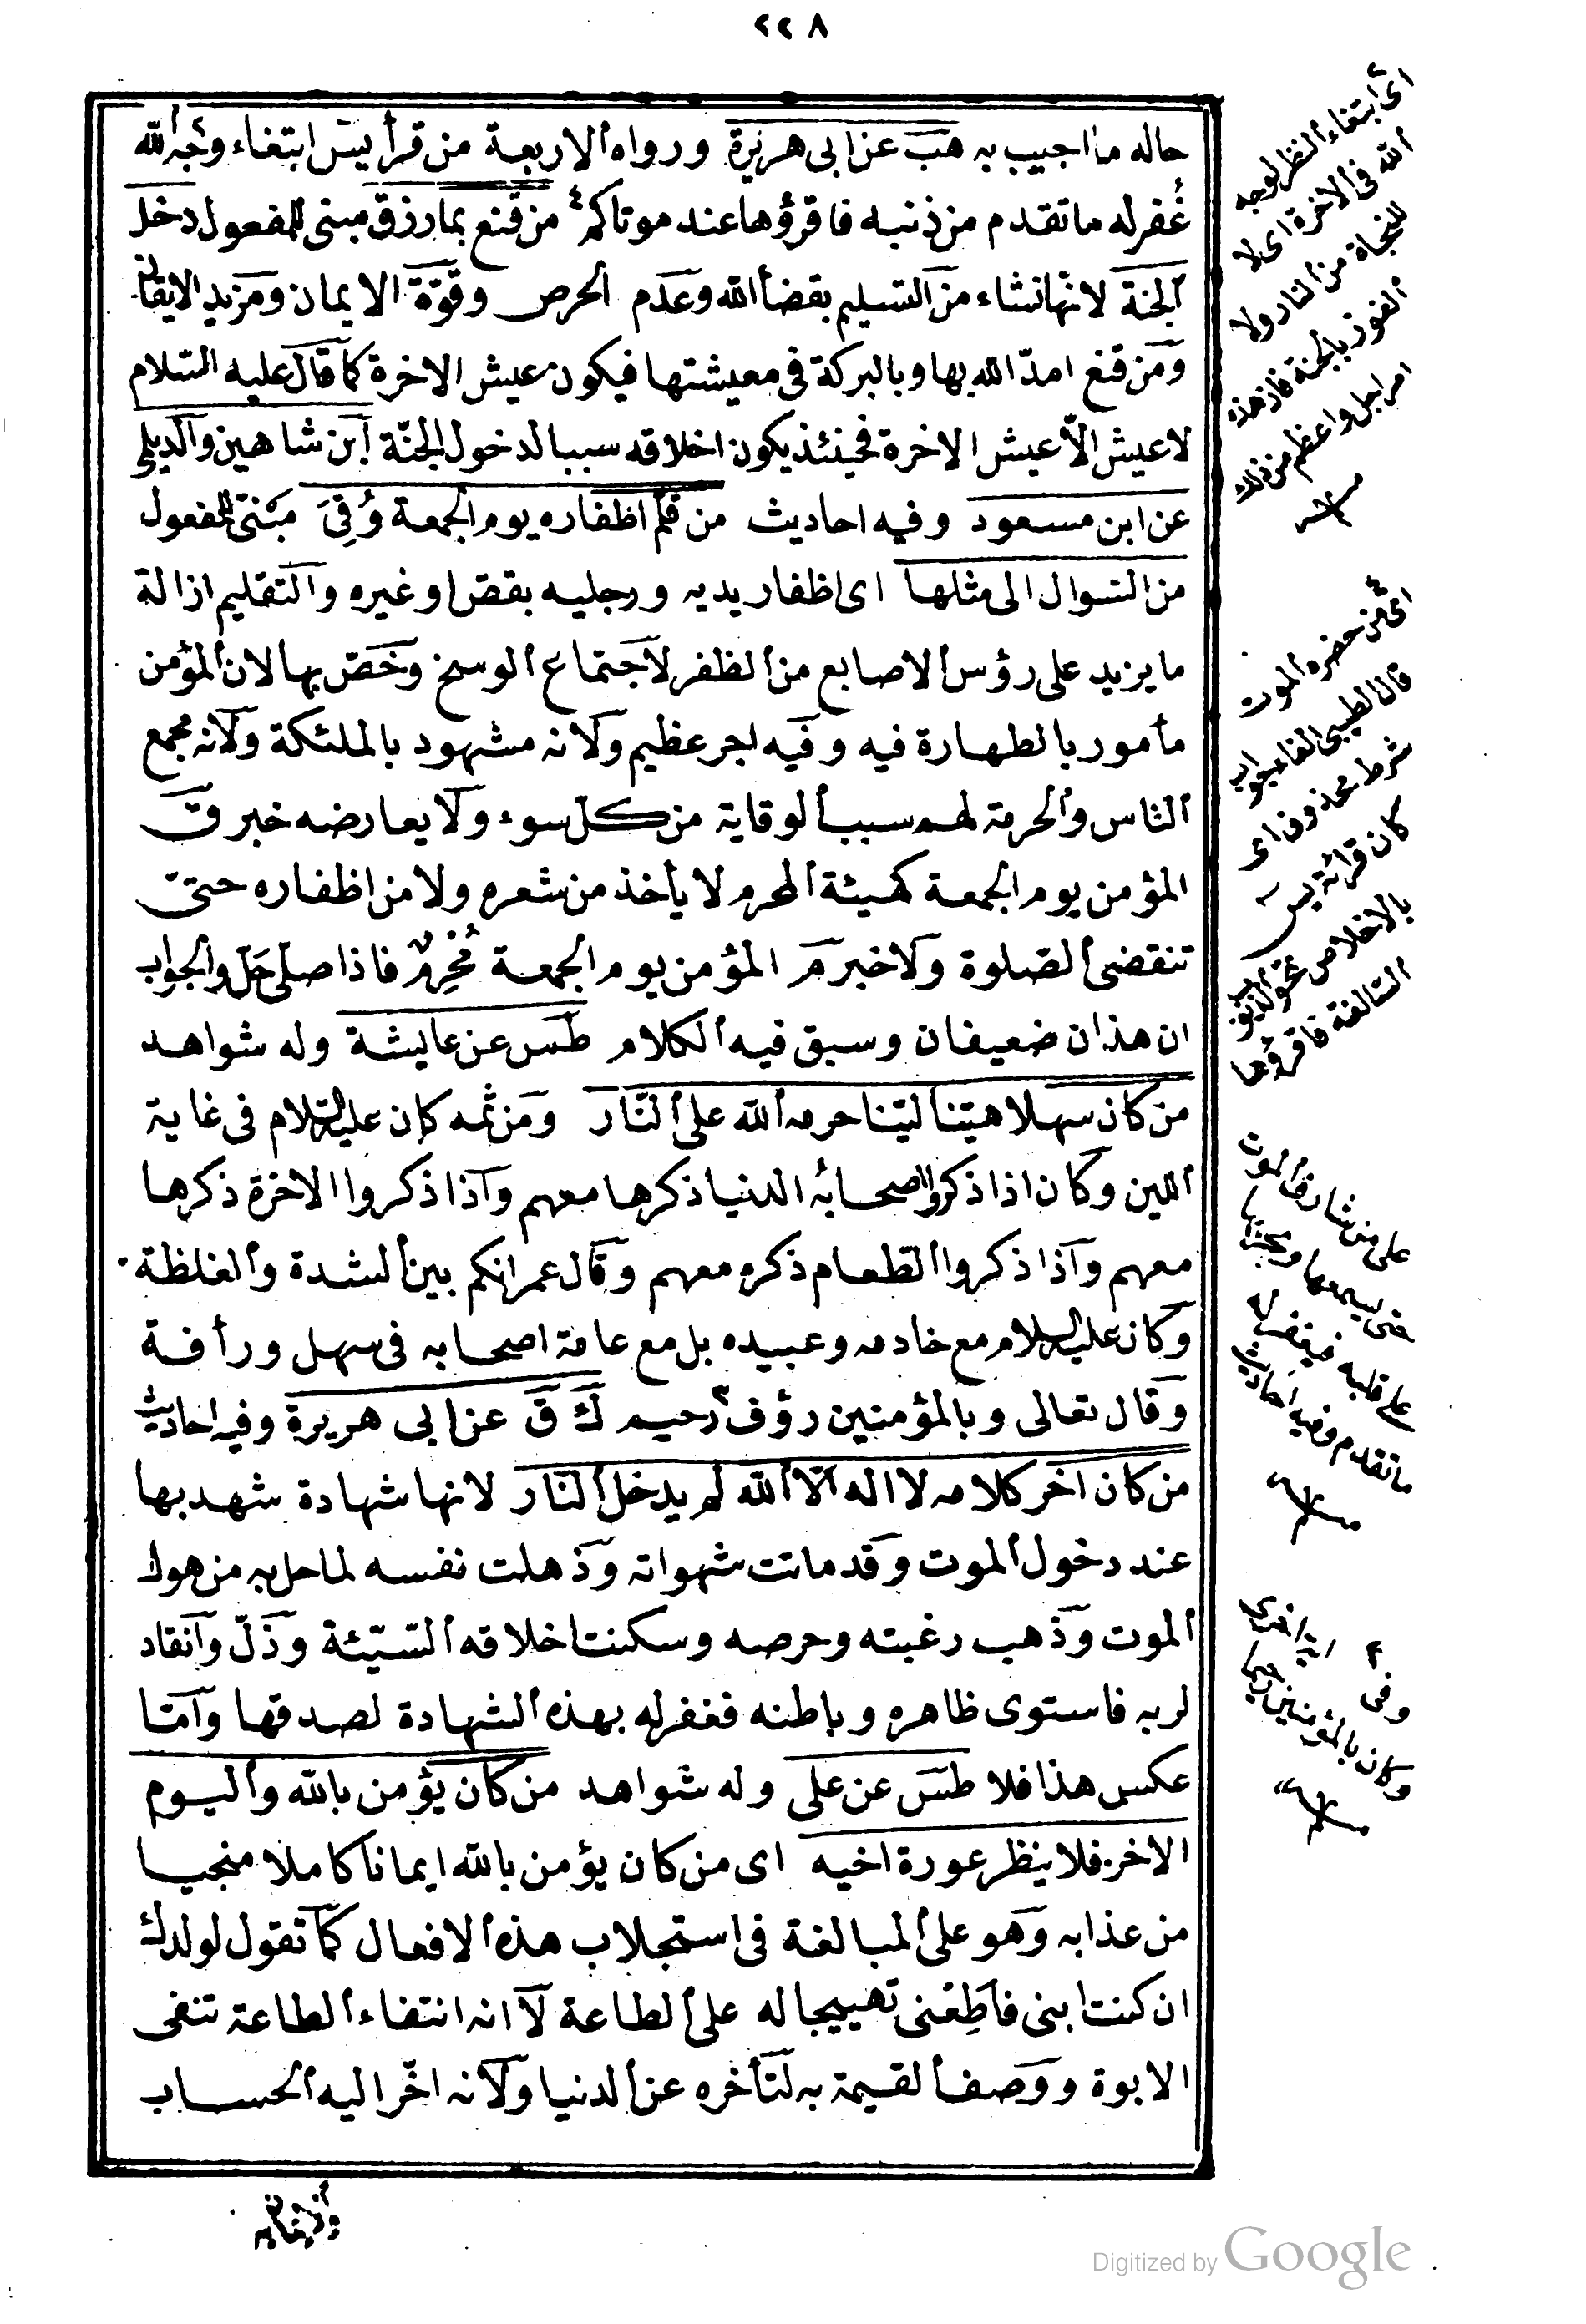 ٢٢٨
حاله ما اجيب به هب عن ابى هريرة ورواه الاربعة من قرأ يس ابتغاء وجه الله
غفر له ما تقدم من ذنبه فاقرؤها عند موتاكم من قنع بما رزق مبنى للمفعول دخل
الجنة لانها نشاء من التسليم بقضاء الله وعدم الحرص وقوة الايمان ومزيد الايقان
ومن قنع امدّ الله بها وبالبركة فى معيشتها فيكون عيش الاخرة كما قال عليه السلام
لا عيش الّا عيش الاخرة فحينئذ يكون اخلاقه سببا لدخول الجنّة ابن شاهين والديلمى
عن ابن مسعود وفيه احاديث من قلم اظفاره يوم الجمعة وُقِىَ مبنىّ للمفعول
من السوال الى مثلها اى اظفار يديه ورجليه بقصّ او غيره والتقليم ازالة
ما يزيد على رؤس الاصابع من الظفر لاجتماع الوسخ وخصّ بها لان المؤمن
مأمور بالطهارة فيه وفيه اجر عظيم ولانه مشهود بالملئكة ولانه مجمع
الناس والحرمة لهم سبب الوقاية من كل سوء ولا يعارضه خبر ق
المؤمن يوم الجمعة كهيئة المحرم لا يأخذ من شعره ولا من اظفاره حتىّ
تنقضى الصلوة ولا خبر م المؤمن يوم الجمعة مُحْرِمٌ فاذا صلى حلّ والجواب
ان هذان ضعيفان وسبق فيه الكلام طس عن عايشة وله شواهد
من كان سهلا هيّنا ليّنا حرمه الله على النّار ومن ثمه كان عليه السلام فى غاية
اللين وكان اذا ذكروا اصحابه الدنيا ذكرها معهم واذا ذكروا الاخرة ذكرها
معهم واذا ذكروا الطعام ذكره معهم وقال عمر انكم بين الشدة والغلظة
وكان عليه السلام مع خادمه وعبيده بل مع عامة اصحابه فى سهل ورأفة
وقال تعالى وبالمؤمنين رؤف رحيم ك ق عن ابى هريرة وفيه احاديث
من كان اخر كلامه لا اله الّا الله لم يدخل النّار لانها شهادة شهد بها
عند دخول الموت وقد ماتت شهواته وذهلت نفسه لما حل به من هول
الموت وذهب رغبته وحرصه وسكنت اخلاقه السّيّئة وذلّ وانقاد
لربه فاستوى ظاهره وباطنه فغفر له بهذه الشهادة لصدقها وامّا
عكس هذا فلا طس عن على وله شواهد من كان يؤمن بالله واليوم
الاخر فلا ينظر عورة اخيه اى من كان يؤمن بالله ايمانا كاملا منجيا
من عذابه وهو على المبالغة فى استجلاب هذه الافعال كما تقول لولدك
ان كنت ابنى فأطِعْنى تهييجا له على الطاعة لا انه انتفاء الطاعة تنفى
الابوة ووصف القيمة به لتأخره عن الدنيا ولانه اخّر اليه الحساب
اى ابتغاء النظر لوجه
الله فى الاخرة اى لا
للنجاة من النار ولا
الفوز بالجنة فان هذه
امر اجل واعظم من ذلك
اى من حضره الموت
قال الطيبى الفاء جواب
شرط محذوف اى
كان قرائة يس
بالاخلاص تمحو الذنوب
السالفة فاقرؤها
على من شارف الموت
حتى يسمعها ويجريها
على قلبه فيغفر له
ما تقدم وفيه احاديث
وفى اية اخرى
وكان بالمؤمنين رحيما
Digitized by Google